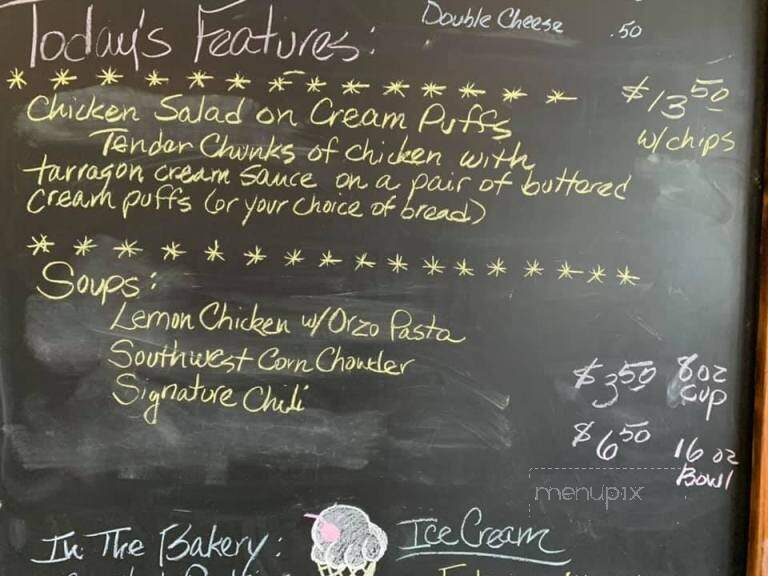 Double Cheese .50
Today's Features:
Chicken Salad on Cream Puffs $13.50
w/chips
Tender Chunks of chicken with
tarragon cream sauce on a pair of buttered
cream puffs (or your choice of bread)
Soups:
Lemon Chicken w/Orzo Pasta
Southwest Corn Chowder
Signature Chili
$3.50 8oz
cup
$6.50 16 oz
Bowl
menupix
In The Bakery:
Ice Cream